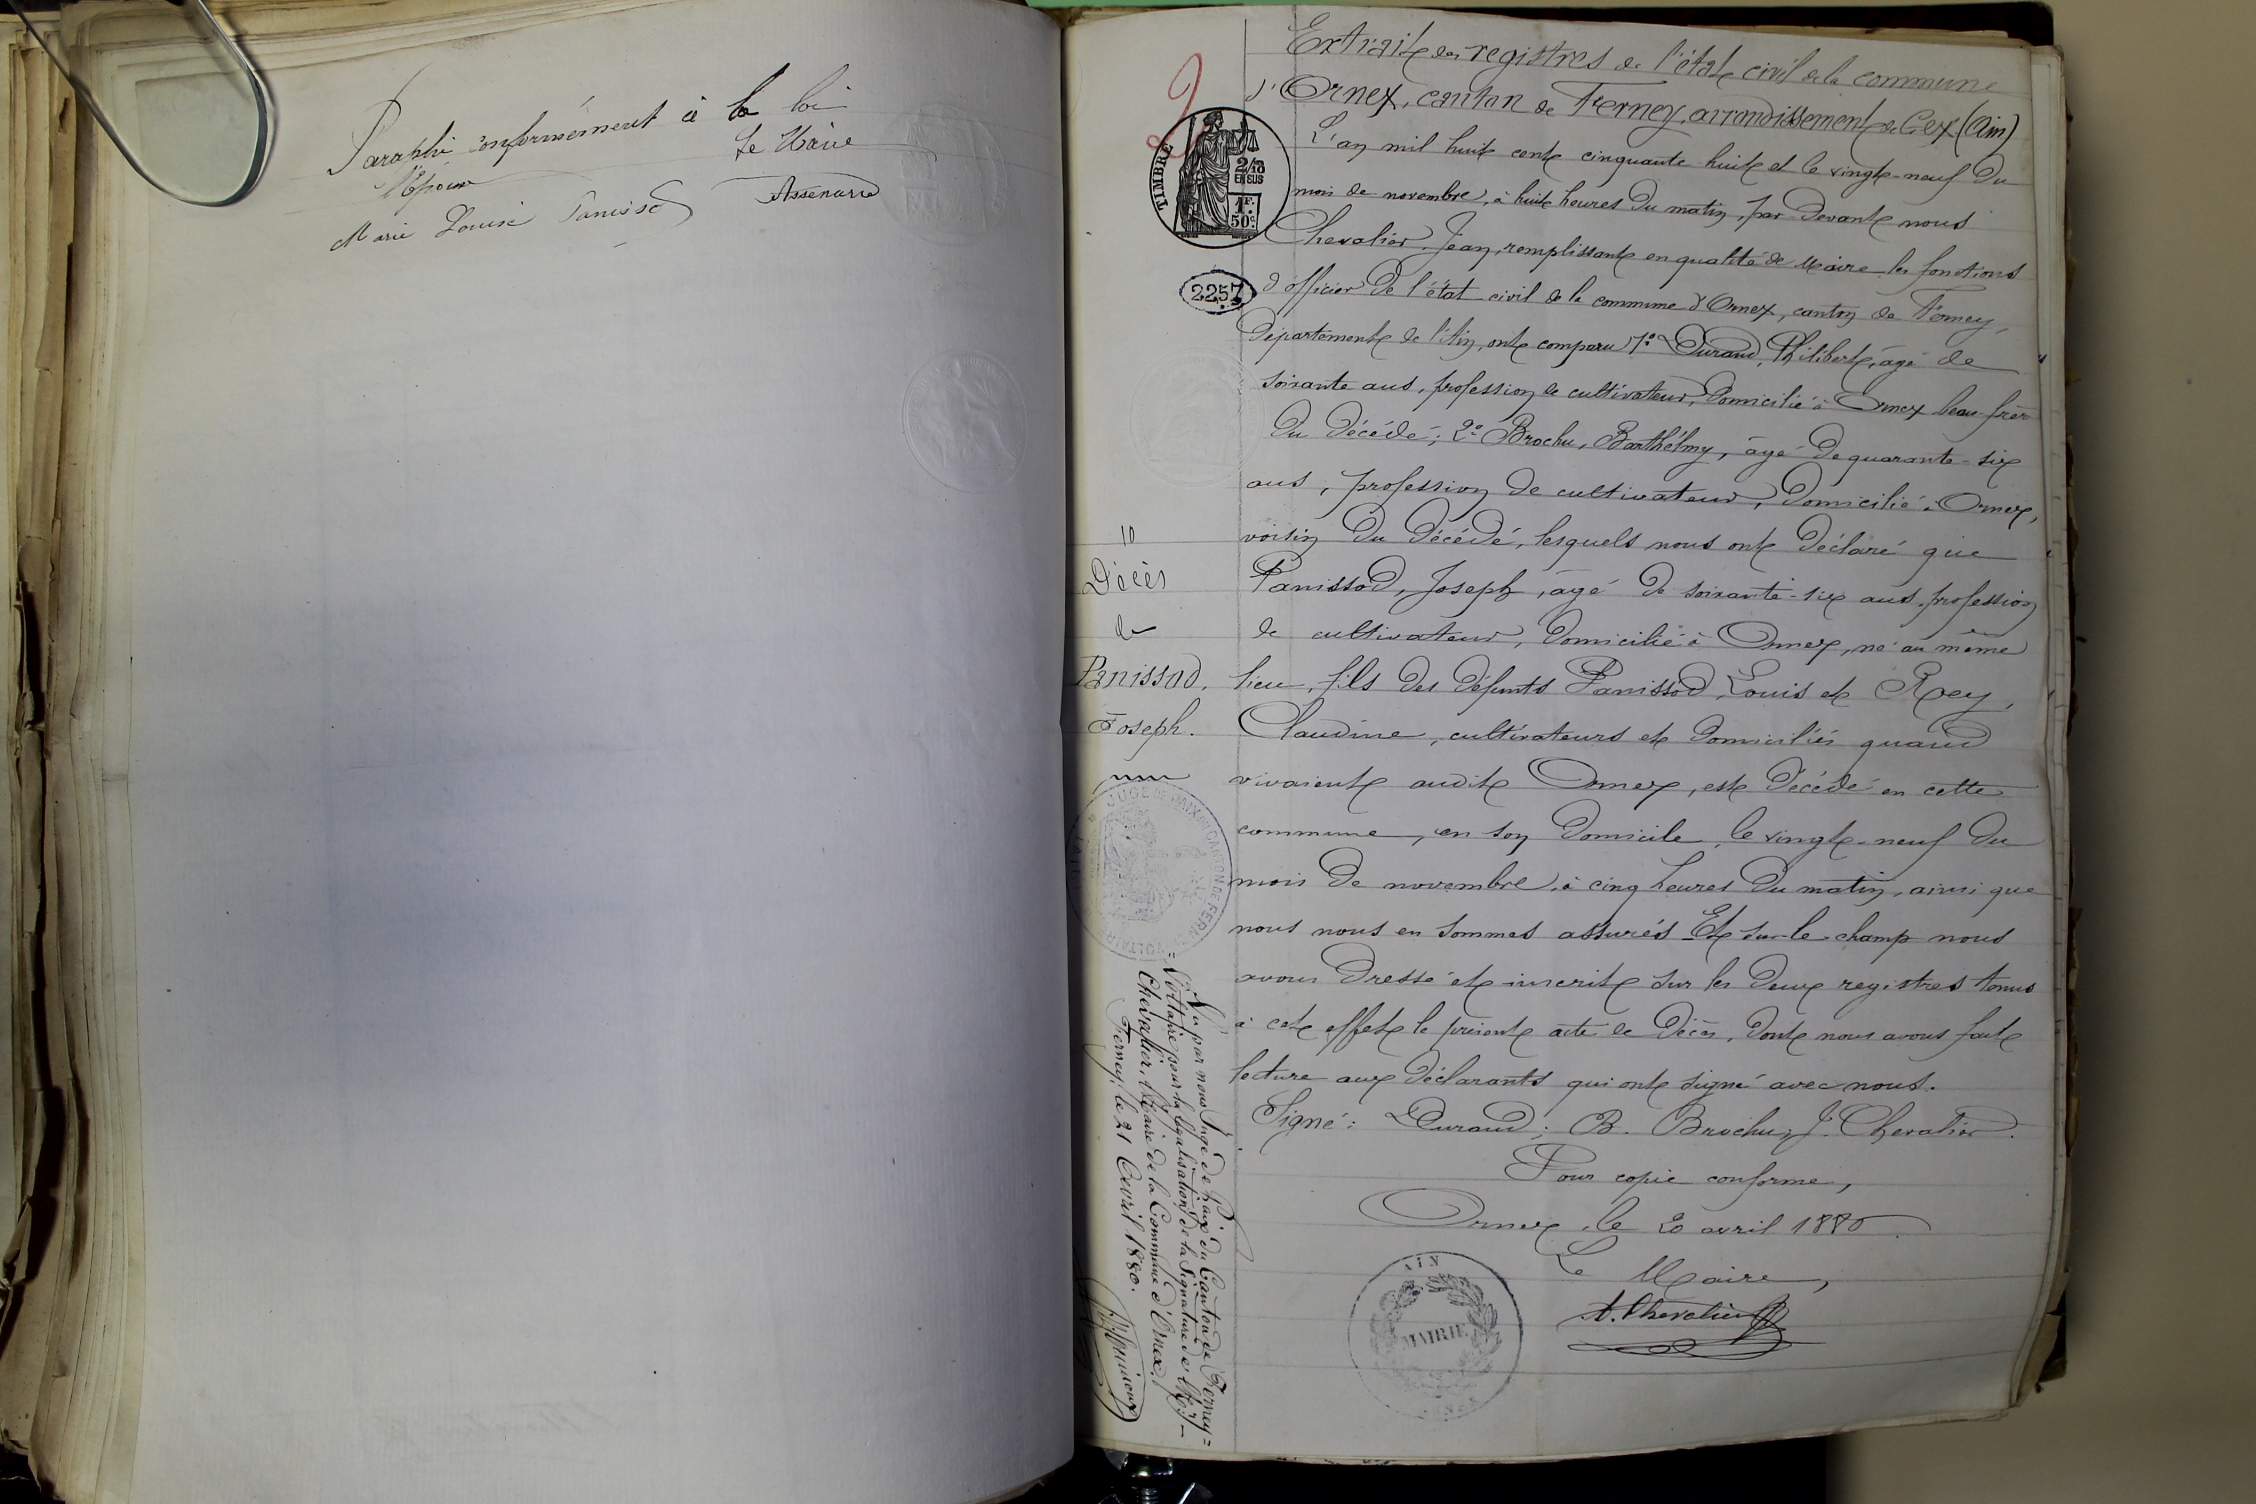 Paraphé conformément à la loi
Le Maire
L'Epoux
Assenarre
Marie Louise Panisset
Extrait des registres de l'état civil de la commune
d'Ornex, canton de Ferney, arrondissement de Gex (Ain)
L'an mil huit cent cinquante huit et le vingt-neuf du
mois de novembre, à huit heures du matin, par devant nous
Chevalier, Jean, remplissant en qualité de Maire les fonctions
d'officier de l'état civil de la commune d'Ornex, canton de Ferney,
département de l'Ain, ont comparu 1° Durand, Philibert, âgé de
soixante ans, profession de cultivateur, domicilié à Ornex beau-frère
du décédé; 2° Brochu, Barthélmy, âgé de quarante-six
ans, profession de cultivateur, domicilié à Ornex,
voisin du décédé, lesquels nous ont déclaré que
Panissod, Joseph, âgé de soixante-six ans, profession
de cultivateur, domicilié à Ornex, né au même
lieu, fils des défunts Panissod, Louis et Rey,
Claudine, cultivateurs et domiciliés quand
vivaient audit Ornex, est décédé en cette
commune, en son domicile, le vingt-neuf du
mois de novembre, à cinq heures du matin, ainsi que
nous nous en sommes assurés. Et sur-le-champ nous
avons dressé et inscrit sur les deux registres tenus
à cet effet le présent acte de décès, dont nous avons fait
lecture aux déclarants qui ont signé avec nous.
Signé: Durand; B. Brochu; J. Chevalier.
Pour copie conforme,
Ornex, le 20 avril 1880.
Le Maire,
A. Chevalier
AIN
MAIRIE
2
TIMBRE
2/10
EN SUS
1F.
50c.
2257
10
Décès
de
Panissod,
Joseph.
JUGE DE PAIX DU CANTON DE FERNEY VOLTAIRE
Vu par nous Juge de Paix du Canton de Ferney=
=Voltaire pour la légalisation de la Signature de Mr
Chevalier, Maire de la Commune d'Ornex.
Ferney, le 21 Avril 1880.